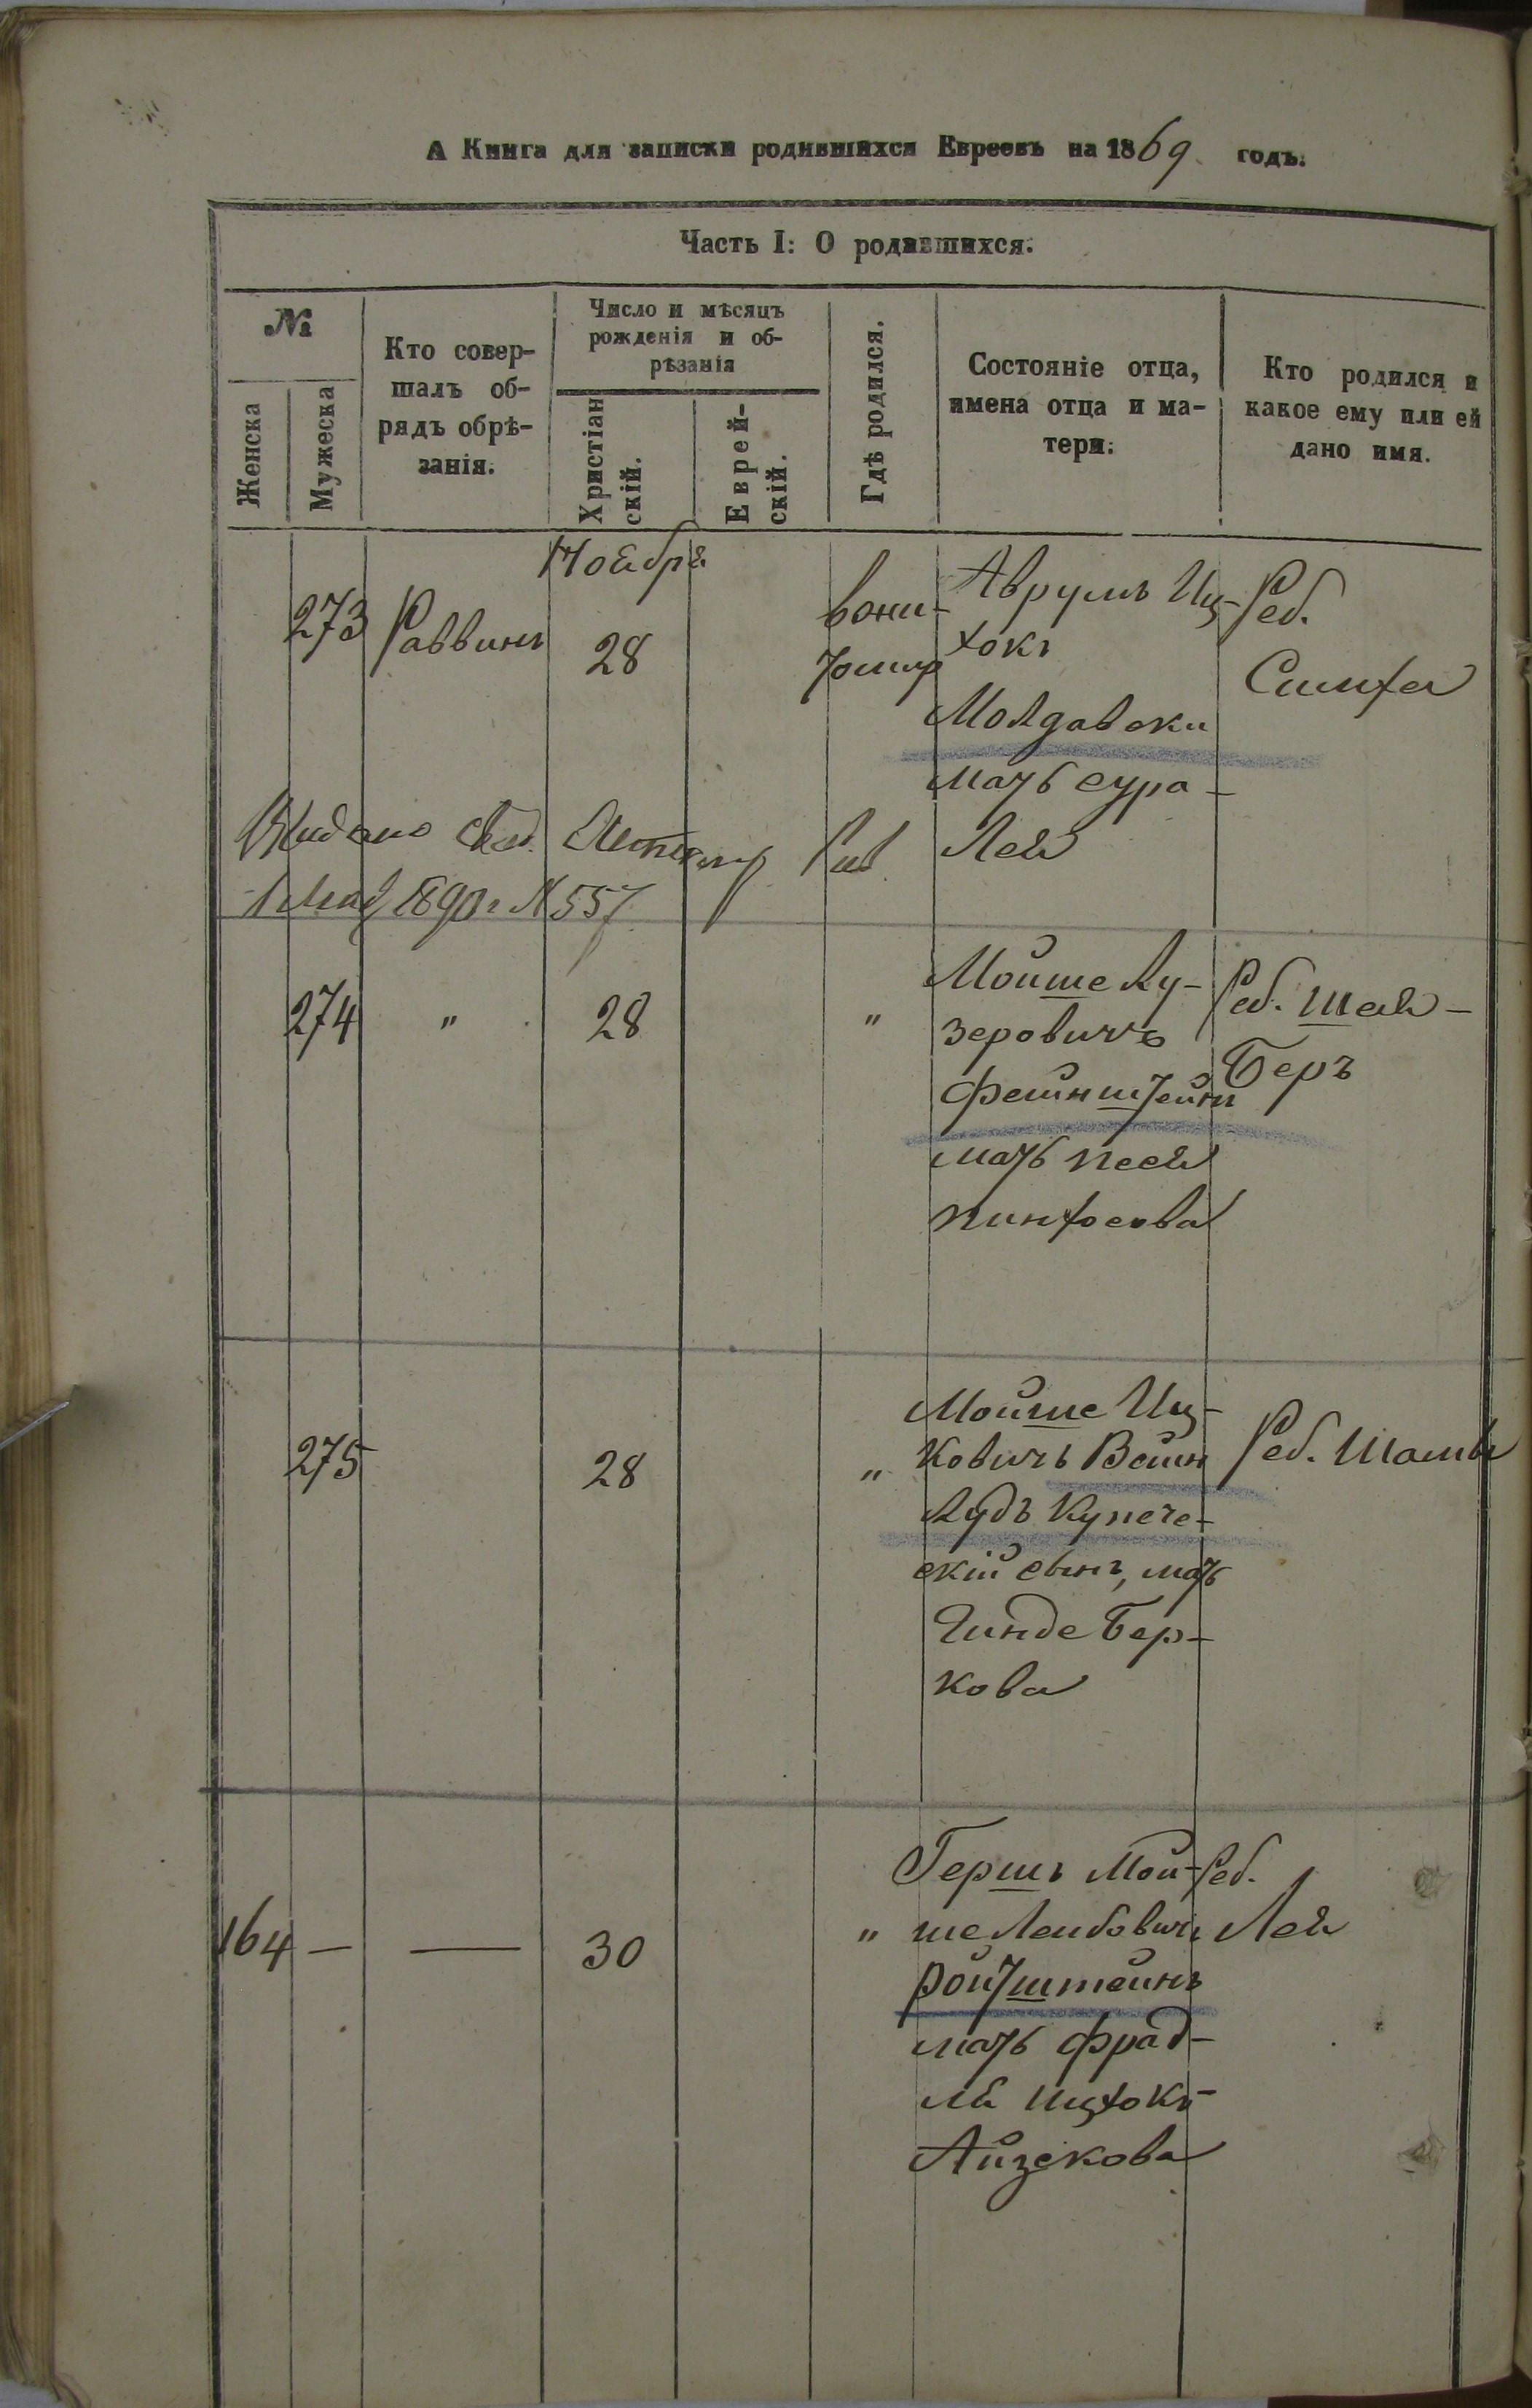 А Книга для записки родившихся Евреевъ на 1869 годъ.
Часть I: О родившихся.
№
Женска
Мужеска
Кто совер-
шалъ об-
рядъ обрѣ-
занія.
Число и мѣсяцъ
рожденія и об-
рѣзанія
Христіан
скій.
Еврей-
скій.
Гдѣ родился.
Состояніе отца,
имена отца и ма-
тери.
Кто родился и
какое ему или ей
дано имя.
Ноября
273
Раввинъ
28
Аврумъ Иц-
хокъ
Молдавски
мать Сура -
Лея
Реб.
Симха
Видано
1890 г № 557
274
"
28
"
Мойше Лу-
зеровичъ
Фейнштейнъ
мать Песя
Пинхосова
Реб. Шая -
Беръ
275
28
"
Мойше Иц-
ковичъ Вайн
Лудъ Купече-
скій сынъ, мать
Гинде Бер-
кова
Реб.
164
—
—
30
"
Гершъ Мой-
ше Лейбовичъ
Ройтштейнъ
мать Фрад-
ля Ицхокъ-
Айзекова
Реб.
Лея